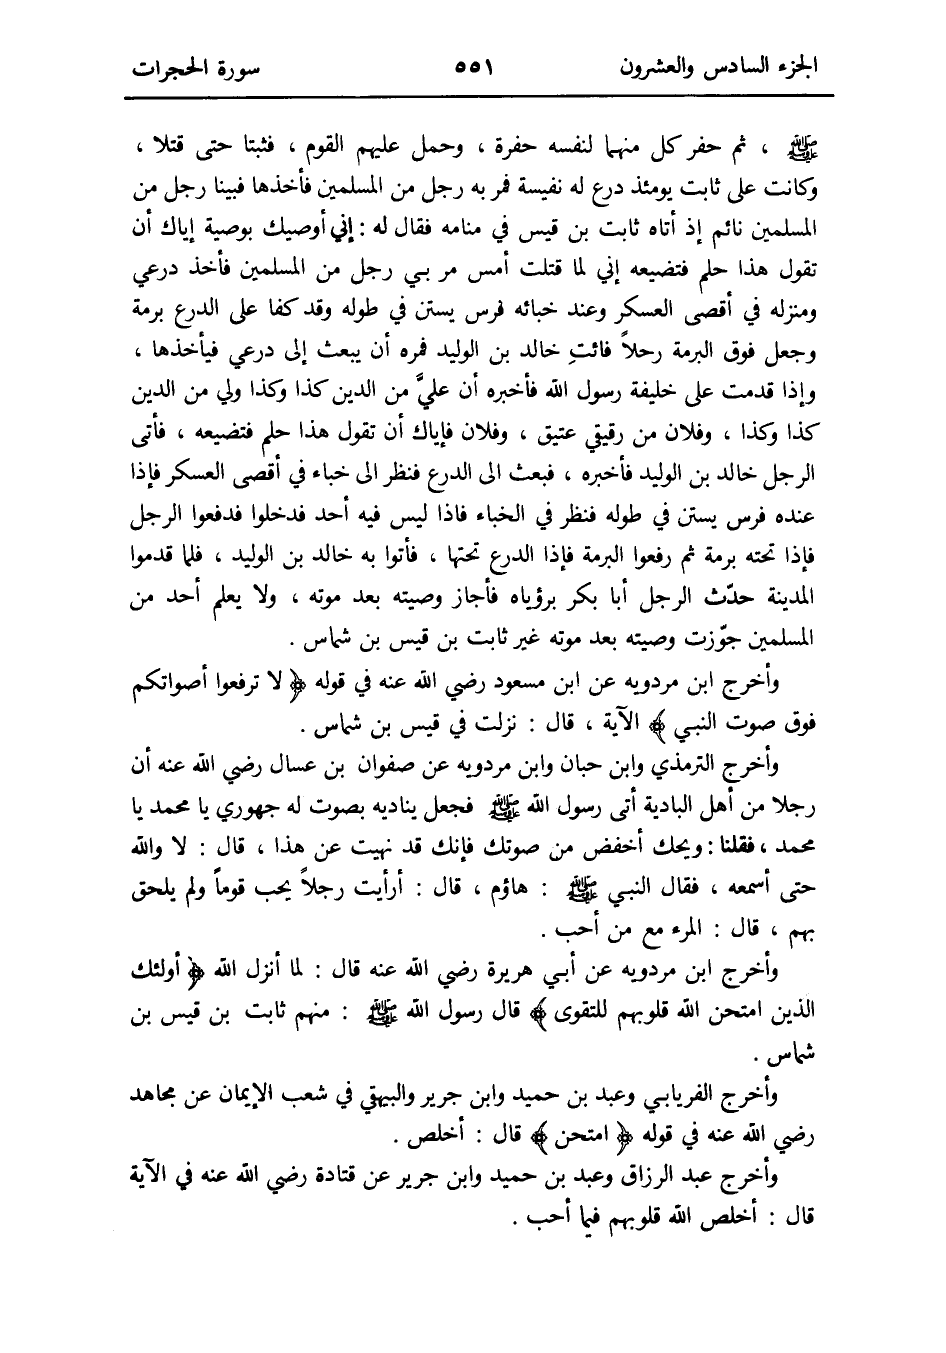 الجزء السادس والعشرون ٥٥١ سورة الحجرات
ﷺ ، ثم حفر كل منهما لنفسه حفرة ، وحمل عليهم القوم ، فثبتا حتى قتلا ،
وكانت على ثابت يومئذ درع له نفيسة فمر به رجل من المسلمين فأخذها فبينا رجل من
المسلمين نائم إذ أتاه ثابت بن قيس في منامه فقال له : إني أوصيك بوصية إياك أن
تقول هذا حلم فتضيعه إني لما قتلت أمس مر بي رجل من المسلمين فأخذ درعي
ومنزله في أقصى العسكر وعند خبائه فرس يستن في طوله وقد كفا على الدرع برمة
وجعل فوق البرمة رحلاً فائتِ خالد بن الوليد فمره أن يبعث إلى درعي فيأخذها ،
وإذا قدمت على خليفة رسول الله فأخبره أن عليَّ من الدين كذا وكذا ولي من الدين
كذا وكذا ، وفلان من رقيقي عتيق ، وفلان فإياك أن تقول هذا حلم فتضيعه ، فأتى
الرجل خالد بن الوليد فأخبره ، فبعث الى الدرع فنظر الى خباء في أقصى العسكر فإذا
عنده فرس يستن في طوله فنظر في الخباء فاذا ليس فيه أحد فدخلوا فدفعوا الرجل
فإذا تحته برمة ثم رفعوا البرمة فإذا الدرع تحتها ، فأتوا به خالد بن الوليد ، فلما قدموا
المدينة حدّث الرجل أبا بكر برؤياه فأجاز وصيته بعد موته ، ولا يعلم أحد من
المسلمين جوّزت وصيته بعد موته غير ثابت بن قيس بن شماس .
وأخرج ابن مردويه عن ابن مسعود رضي الله عنه في قوله ﴿ لا ترفعوا أصواتكم
فوق صوت النبي ﴾ الآية ، قال : نزلت في قيس بن شماس .
وأخرج الترمذي وابن حبان وابن مردويه عن صفوان بن عسال رضي الله عنه أن
رجلا من أهل البادية أتى رسول الله ﷺ فجعل يناديه بصوت له جهوري يا محمد يا
محمد ، فقلنا : ويحك أخفض من صوتك فإنك قد نهيت عن هذا ، قال : لا والله
حتى أسمعه ، فقال النبي ﷺ : هاؤم ، قال : أرأيت رجلاً يحب قوماً ولم يلحق
بهم ، قال : المرء مع من أحب .
وأخرج ابن مردويه عن أبي هريرة رضي الله عنه قال : لما أنزل الله ﴿ أولئك
الذين امتحن الله قلوبهم للتقوى ﴾ قال رسول الله ﷺ : منهم ثابت بن قيس بن
شماس .
وأخرج الفريابي وعبد بن حميد وابن جرير والبيهقي في شعب الإيمان عن مجاهد
رضي الله عنه في قوله ﴿ امتحن ﴾ قال : أخلص .
وأخرج عبد الرزاق وعبد بن حميد وابن جرير عن قتادة رضي الله عنه في الآية
قال : أخلص الله قلوبهم فيما أحب .